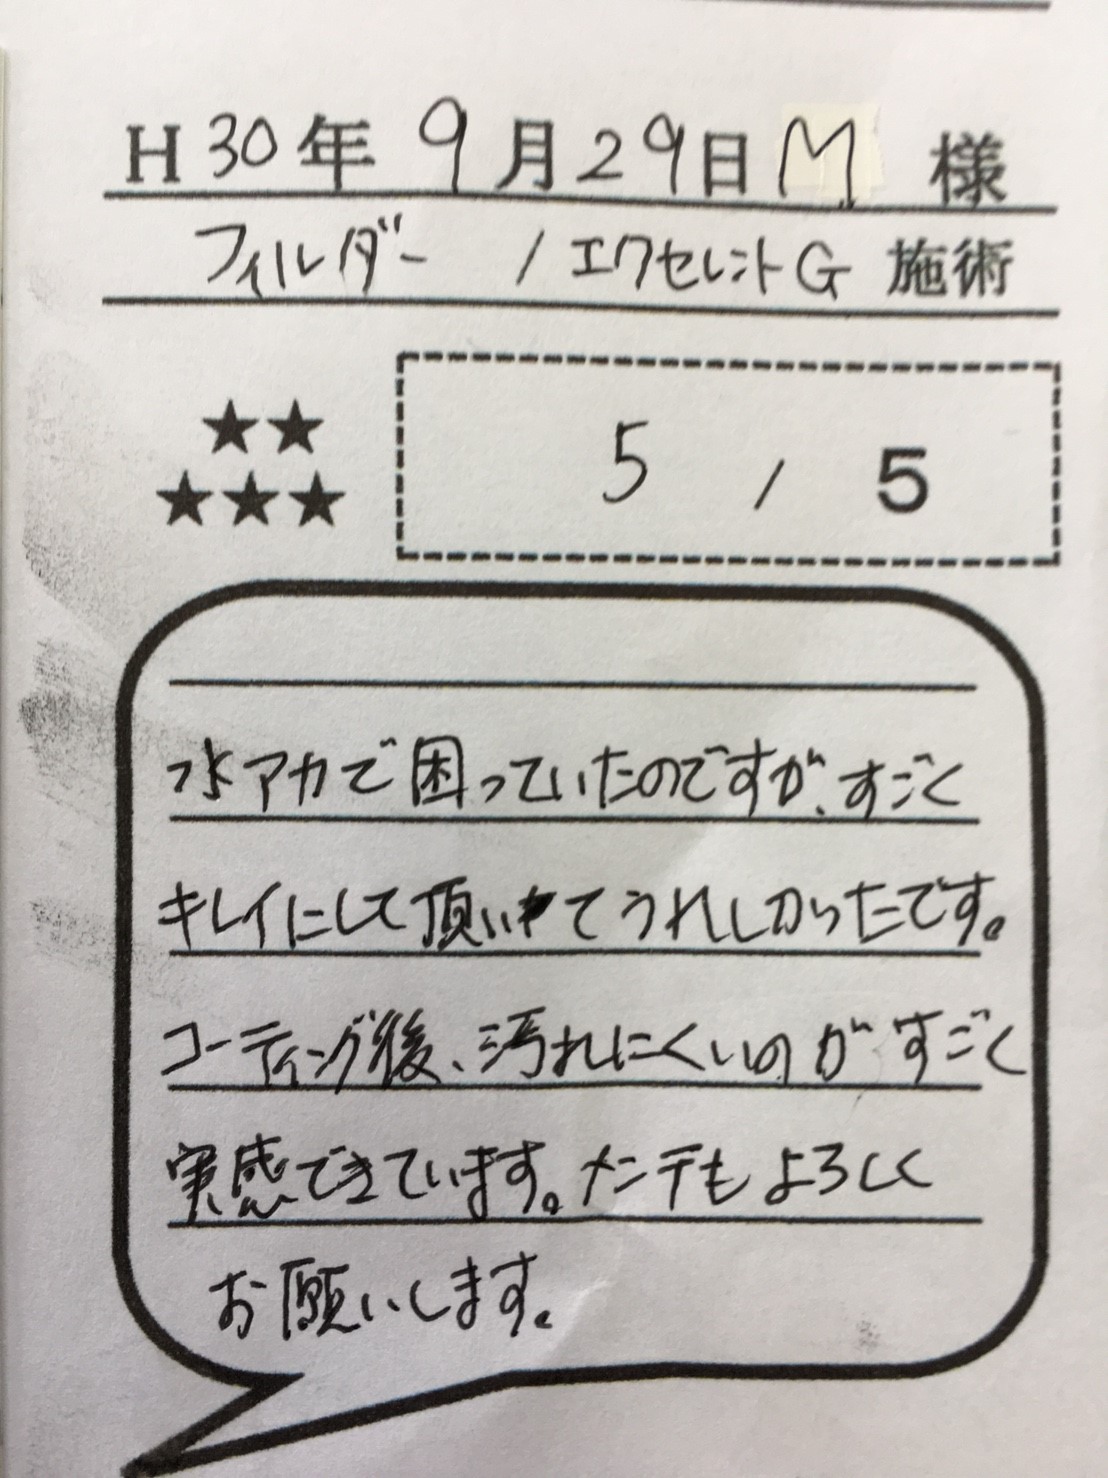 H30年 9月29日 M 様
フィルダー / エクセレントG 施術
★★
★★★
5 / 5
水アカで困っていたのですが、すごく
キレイにして頂いてうれしかったです。
コーティング後、汚れにくいのがすごく
実感できています。メンテもよろしく
お願いします。